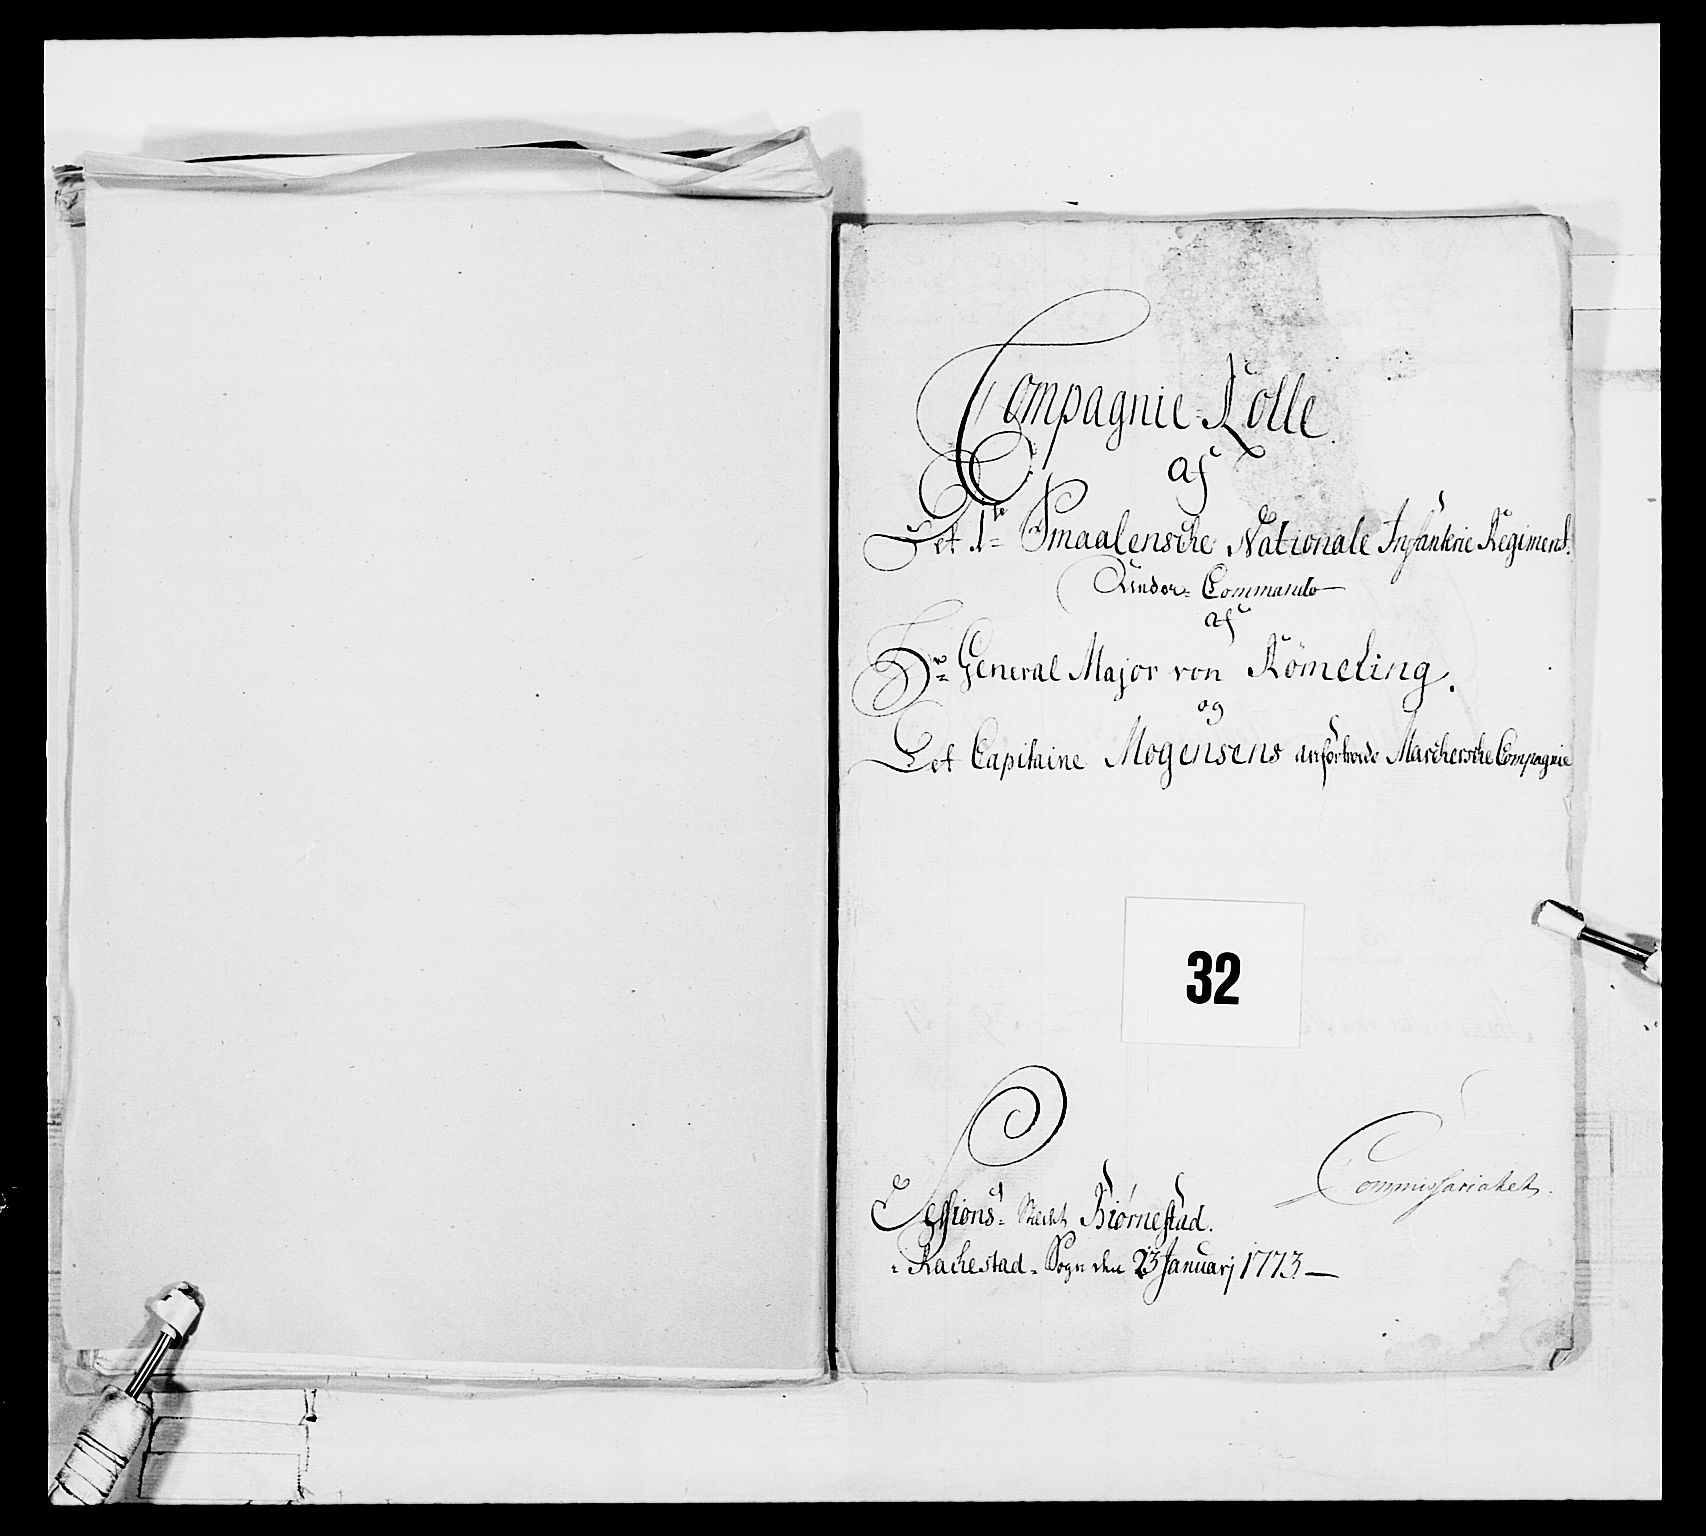 Compagnie Rolle.
af
Det 1te Smaalensche Nationale Infanterie Regiment.
Under Commando
af
Hr General Major von Römeling.
og
Det Capitaine Mogensens anførtroede Marchersche Compagnie
32
Commissariatet.
Sessions Stedet Biørnestad.
Rachestad Sogn den 23 Januarj 1773